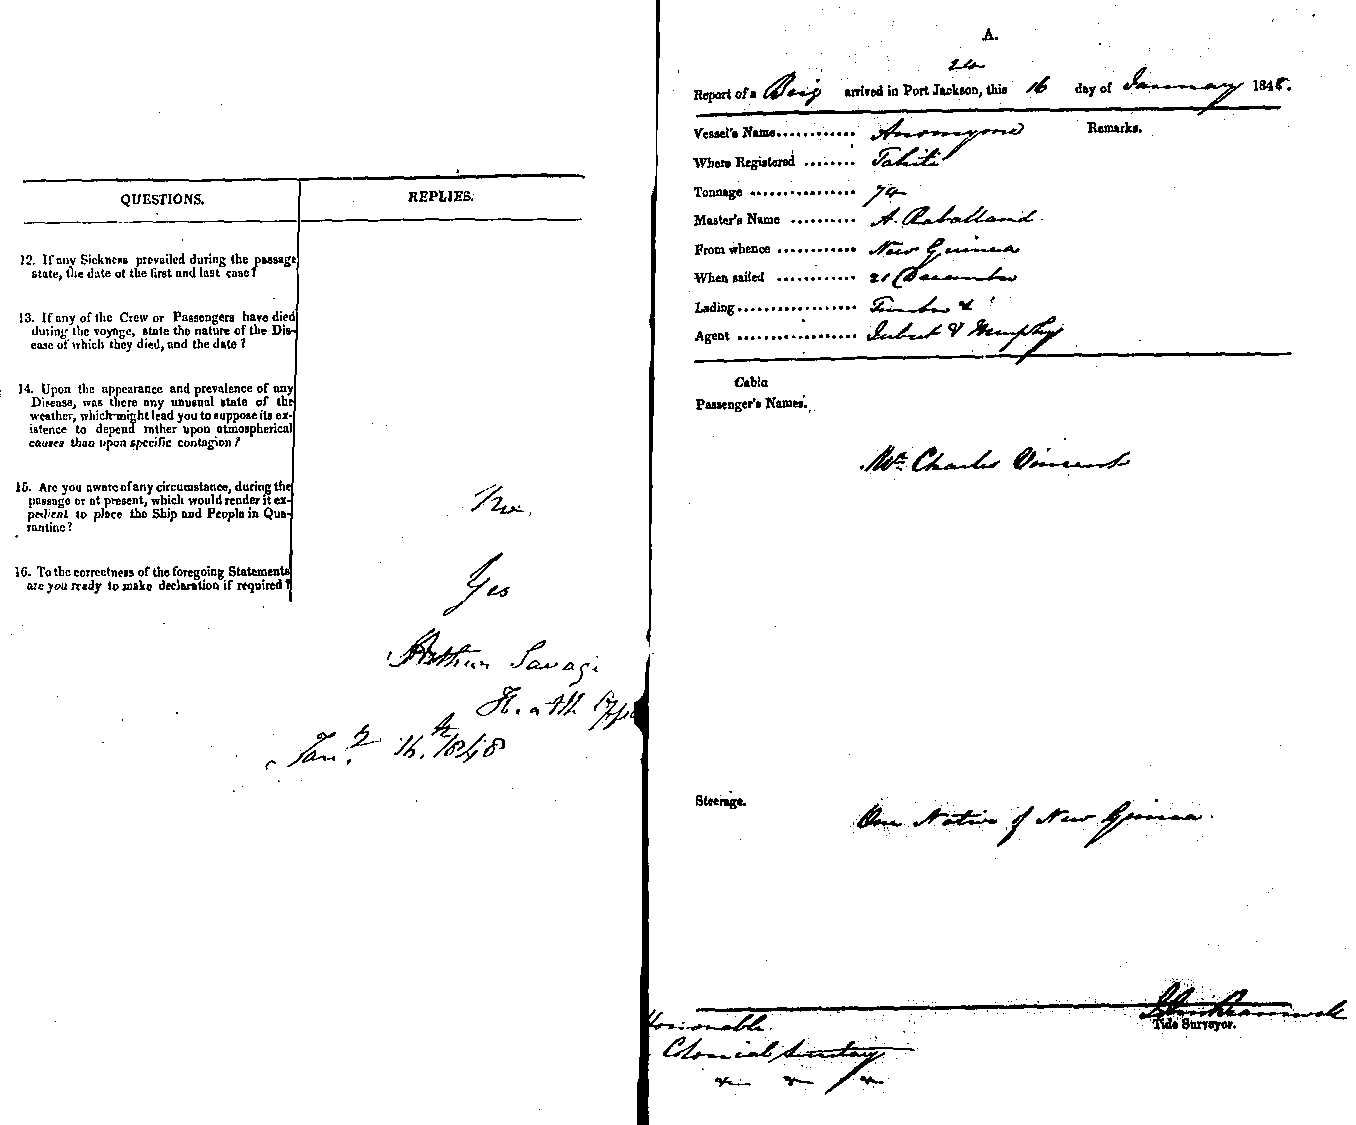 QUESTIONS.
REPLIES.
12. If any Sickness prevailed during the passage
state, the date of the first and last case?
13. If any of the Crew or Passengers have died
during the voyage, state the nature of the Dis-
ease of which they died, and the date?
14. Upon the appearance and prevalence of any
Disease, was there any unusual state of the
weather, which might lead you to suppose its ex-
istence to depend rather upon atmospherical
causes than upon specific contagion?
15. Are you aware of any circumstance, during the
passage or at present, which would render it ex-
pedient to place the Ship and People in Qua-
rantine?
No.
16. To the correctness of the foregoing Statements
are you ready to make declaration if required?
Yes
Arthur Savage
Health
Jany. 16th. 1848
A.
Report of a Brig arrived in Port Jackson, this 16 day of January 1848.
Vessel's Name............ Anonyme
Remarks.
Where Registered ........ Tahiti
Tonnage ................ 74
Master's Name .......... A. Raballand.
From whence ............ New Guinea
When sailed ............ 21 December
Lading.................. Timber &
Agent .................. & Murphy
Cabin
Passenger's Names.
Mr. Charles Vincent
Steerage.
One Native of New Guinea.
Tide Surveyor.
Honorable
Colonial Secretary